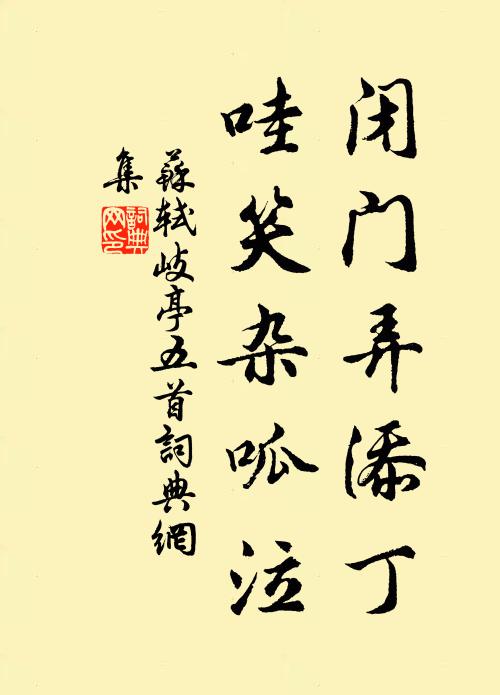 闭门弄添丁
哇笑杂呱泣
蘇軾岐亭五首詞典網
集
詞典
网印